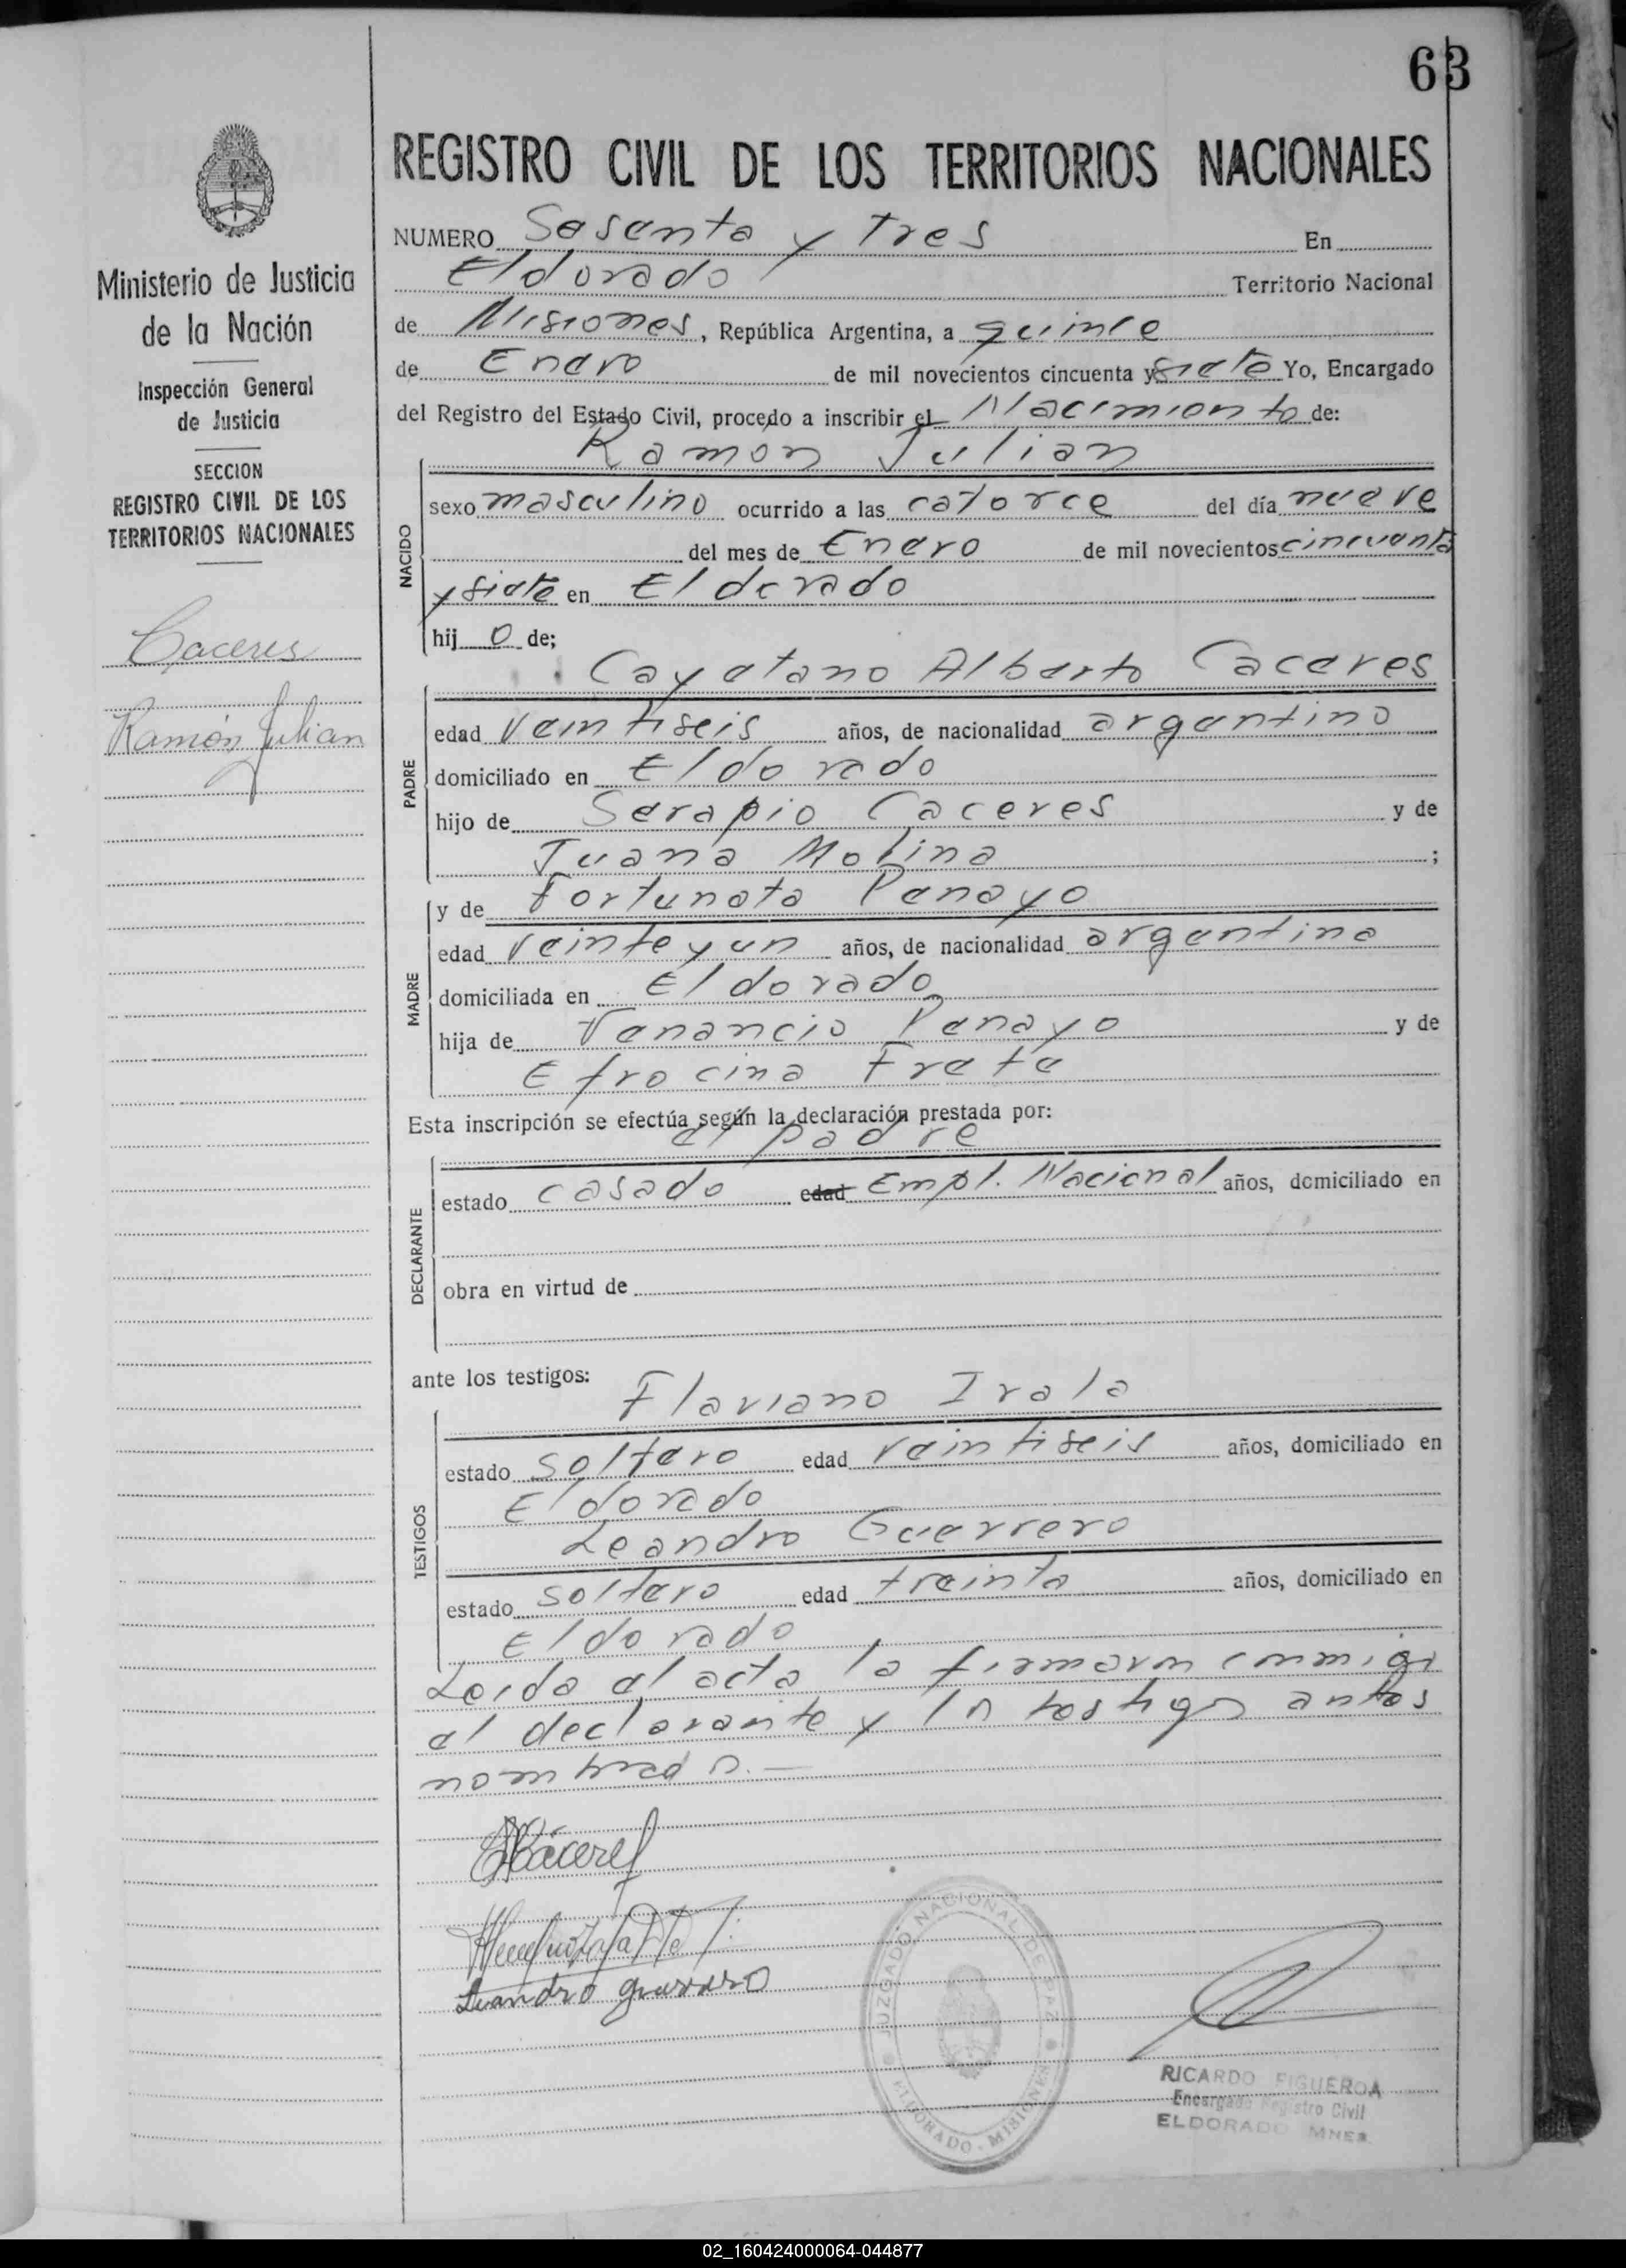 63
REGISTRO CIVIL DE LOS TERRITORIOS NACIONALES
Ministerio de Justicia
de la Nación
Inspección General
de Justicia
SECCION
REGISTRO CIVIL DE LOS
TERRITORIOS NACIONALES
Caceres
Ramón Julian
NUMERO Sesenta y Tres En
Eldorado Territorio Nacional
de Misiones, República Argentina, a quince
de Enero de mil novecientos cincuenta y siete Yo, Encargado
del Registro del Estado Civil, procedo a inscribir el Nacimiento de:
Ramon Julian
NACIDO
sexo masculino ocurrido a las catorce del día nueve
del mes de Enero de mil novecientos cincuenta
y siete en Eldorado
hij o de;
Cayetano Alberto Caceres
PADRE
edad veintiseis años, de nacionalidad argentino
domiciliado en Eldorado
hijo de Serapio Caceres y de
Juana Molina ;
y de Fortunata Penayo
MADRE
edad veinte y un años, de nacionalidad argentina
domiciliada en Eldorado
hija de Venancio Penayo y de
Efrocina Frete
Esta inscripción se efectúa según la declaración prestada por:
el padre
DECLARANTE
estado casado edad Empl. Nacional años, domiciliado en
obra en virtud de
ante los testigos:
Flaviano Irala
TESTIGOS
estado soltero edad veintiseis años, domiciliado en
Eldorado
Leandro Guerrero
estado soltero edad treinta años, domiciliado en
Eldorado
Leida el acta la firmaron conmigo
el declarante y los testigos antes
nombrados.—
Cáceres
Leandro guerrero
JUZGADO NACIONAL DE PAZ
ELDORADO - MISIONES
RICARDO FIGUEROA
Encargado Registro Civil
ELDORADO MNES.
02_160424000064-044877